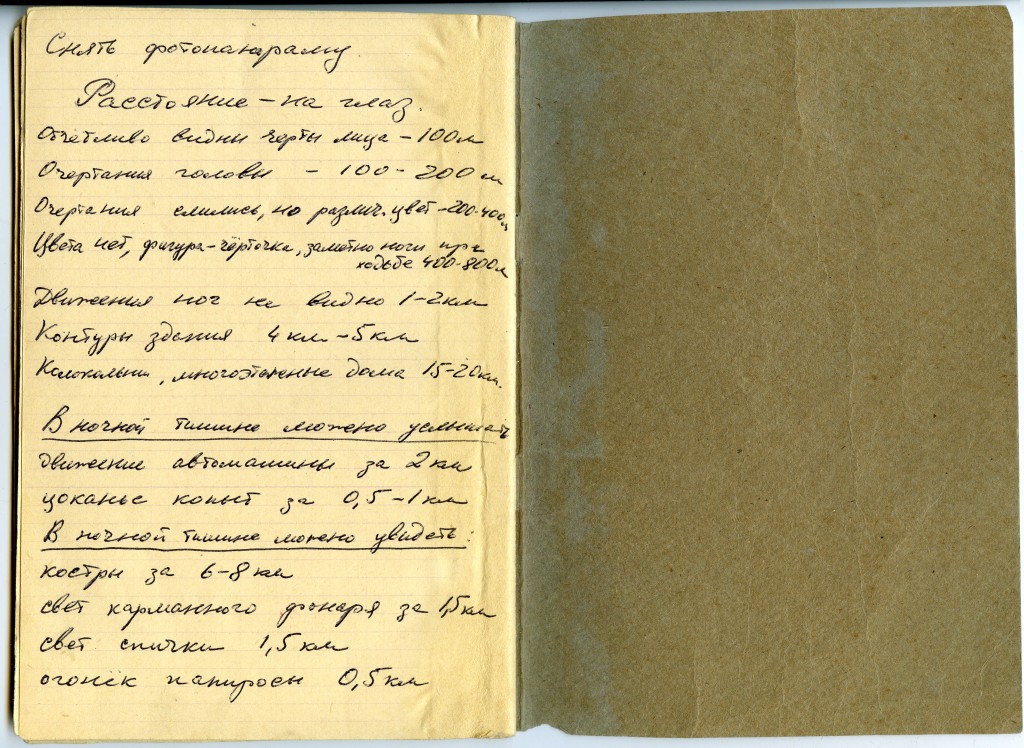 Снять фотопанораму
Расстояние – на глаз.
Отчётливо видны черты лица – 100м
Очертания головы – 100 – 200м
Очертания слились, но различ. цвет – 200-400м
Цвета нет, фигура – чёрточка, заметно ноги при
ходьбе 400-800м
Движения ног не видно 1-2км
Контуры здания 4км – 5км
Колокольни, многоэтажные дома 15-20км.
В ночной тишине можно услышать
движение автомашины за 2км
цоканье копыт за 0,5 – 1км
В ночной тишине можно увидеть:
костры за 6-8км
свет карманного фонаря за 1,5км
свет спички 1,5км
огонёк папиросы 0,5км